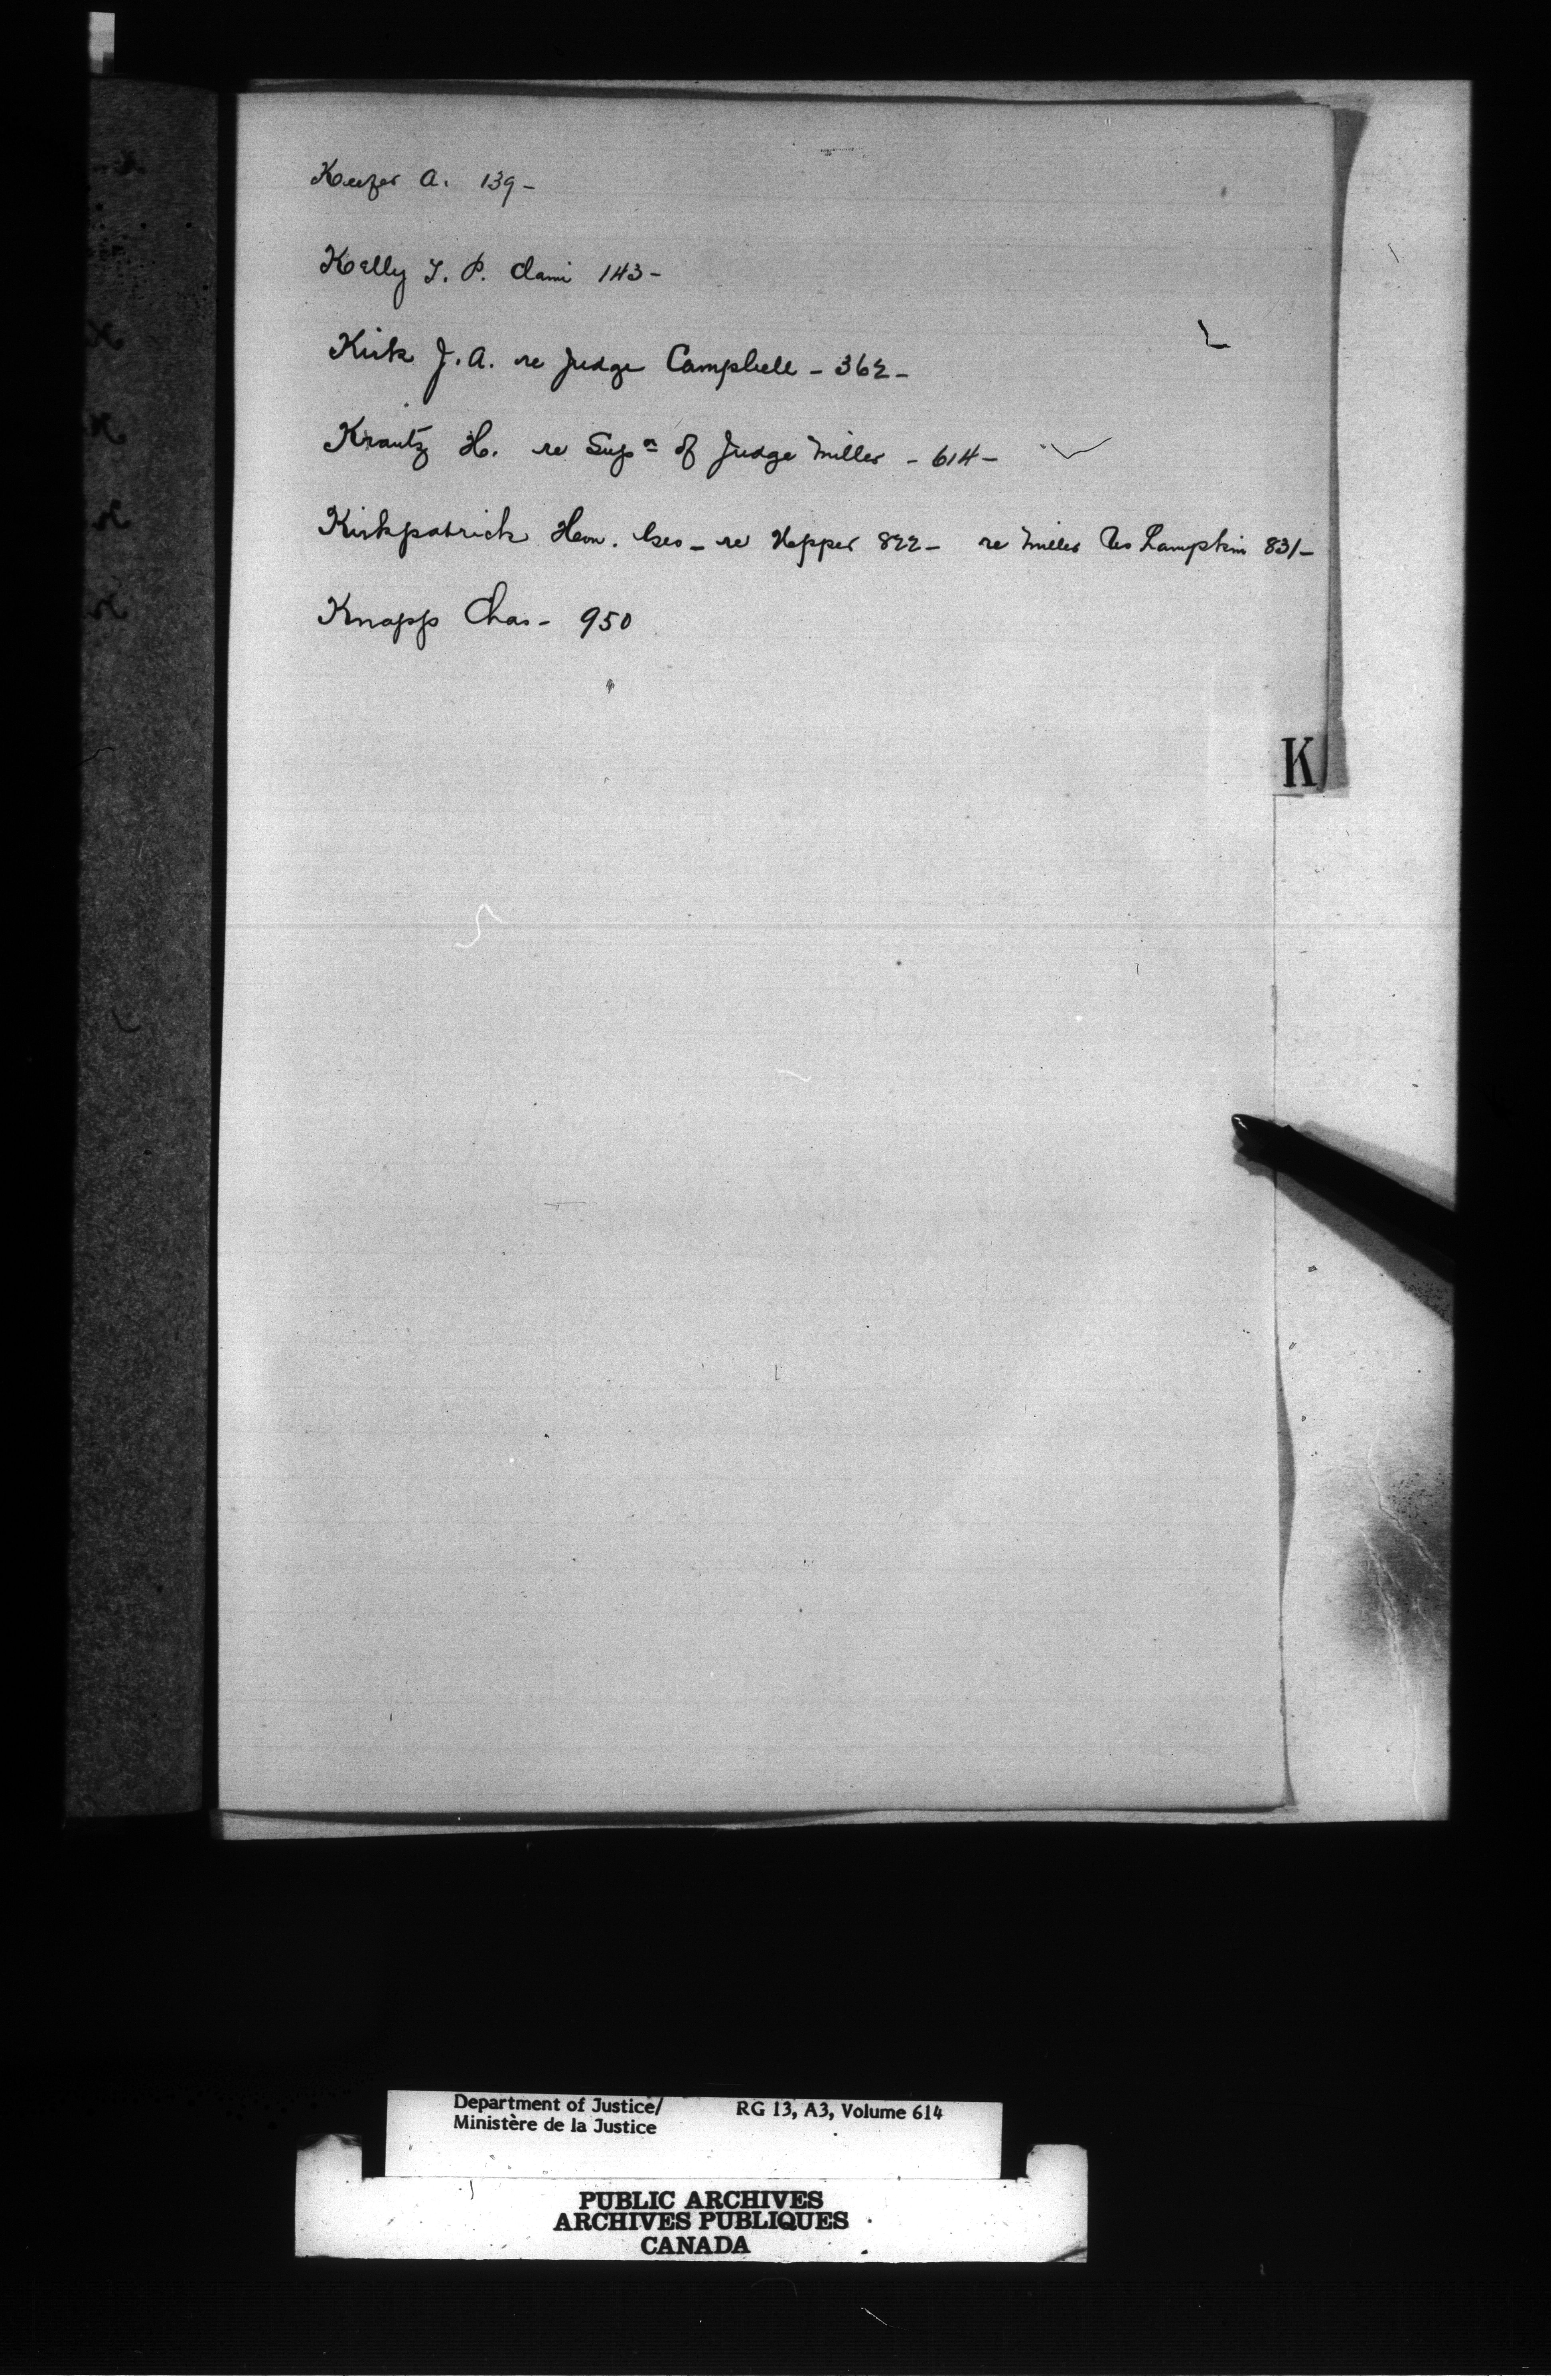 Keefer A. 139 -
Kelly T. P. claim 143 -
Kirk J. A. re Judge Campbell - 362 -
Krautz H. re Supn of Judge Miller - 614 -
Kirkpatrick Hon. Geo - re Hepper 822 - re Miller Lampkin 831 -
Knapp Chas - 950
K
Department of Justice/ RG 13, A3, Volume 614
Ministère de la Justice
PUBLIC ARCHIVES
ARCHIVES PUBLIQUES
CANADA